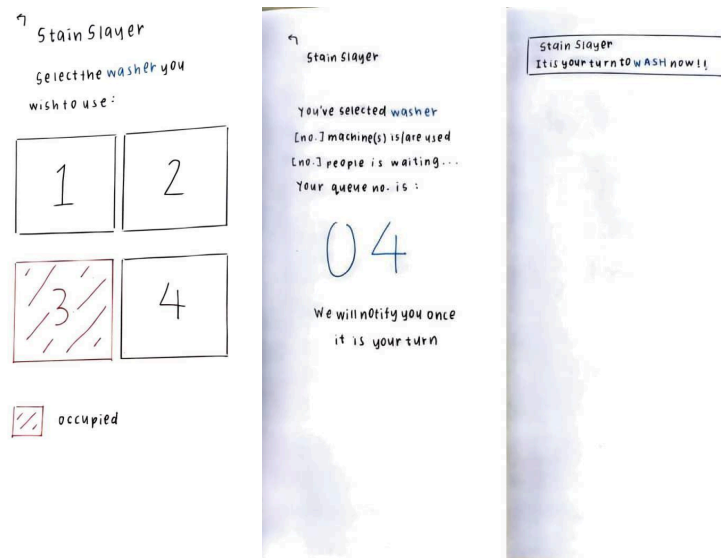 Stain Slayer
Select the washer you
wish to use:
1 2
3 4
occupied
Stain Slayer
You've selected washer
[no.] machine(s) is/are used
[no.] people is waiting...
Your queue no. is :
04
We will notify you once
it is your turn
Stain Slayer
It is your turn to WASH now!!